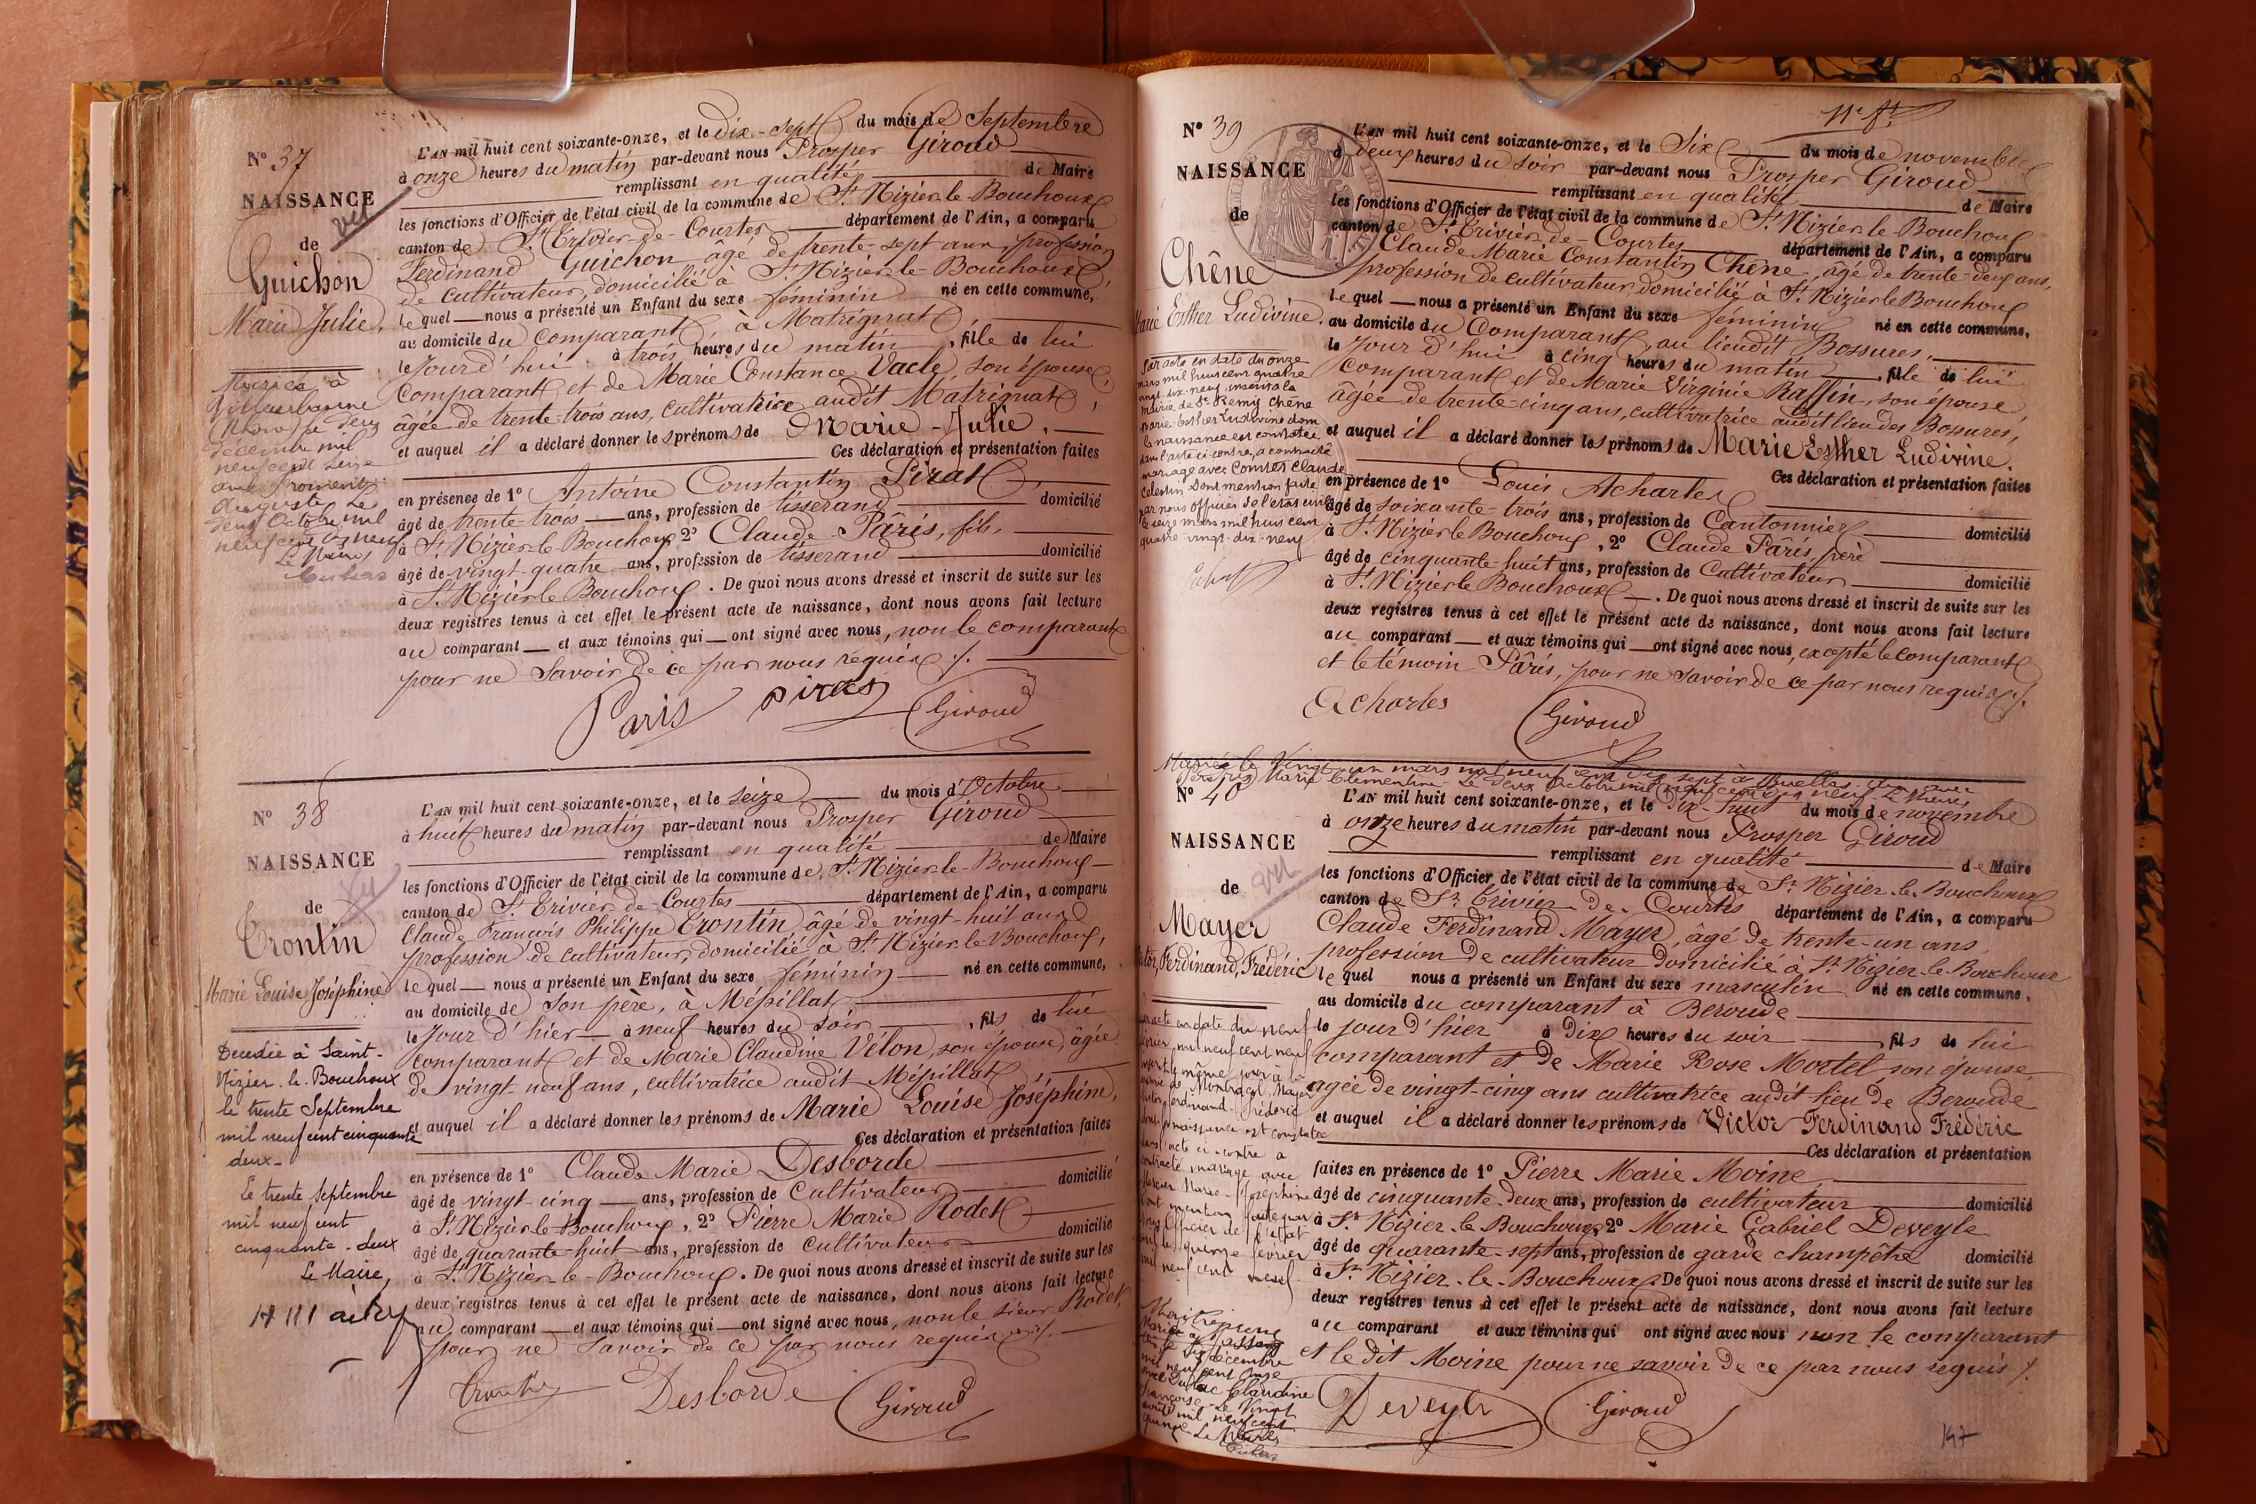 N° 37
NAISSANCE
vu
de
Guichon
Marie Julie.
Mariée à
Villeurbanne
(Rhône) le deux
décembre mil
neuf cent seize
avec
Auguste Le
deux Octobre mil
neuf cent dix neuf
Le Maire
L'AN mil huit cent soixante-onze, et le dix-sept du mois de Septembre
à onze heures du matin par-devant nous Prosper Giroud
remplissant en qualité de Maire
les fonctions d'Officier de l'état civil de la commune de St Nizier le Bouchoux
canton de St Trivier-de-Courtes département de l'Ain, a comparu
Ferdinand Guichon âgé de trente-sept ans, profession
de cultivateur, domicilié à St Nizier-le-Bouchoux
le quel nous a présenté un Enfant du sexe féminin né en cette commune,
au domicile du comparant, à Matrignat,
le Jour d'hui à trois heures du matin, fille de lui
comparant et de Marie Constance Vacle, son épouse,
âgée de trente-trois ans, cultivatrice audit Matrignat,
et auquel il a déclaré donner les prénoms de Marie-Julie.
Ces déclaration et présentation faites
en présence de 1° Antoine Constantin Pirat
âgé de trente-trois ans, profession de tisserand domicilié
à St Nizier-le-Bouchoux, 2° Claude Pâris, fils,
âgé de vingt-quatre ans, profession de tisserand domicilié
à St Nizier le Bouchoux. De quoi nous avons dressé et inscrit de suite sur les
deux registres tenus à cet effet le présent acte de naissance, dont nous avons fait lecture
au comparant et aux témoins qui ont signé avec nous, non le comparant
pour ne savoir de ce par nous requis ./.
Paris pirat Giroud
N° 38
NAISSANCE
vu
de
Trontin
Marie Louise Joséphine
Décédée à Saint-
Nizier-le-Bouchoux
le trente Septembre
mil neuf cent cinquante
deux-
Le trente Septembre
mil neuf cent
cinquante-deux
Le Maire,
L'AN mil huit cent soixante-onze, et le seize du mois d'Octobre
à huit heures du matin par-devant nous Prosper Giroud
remplissant en qualité de Maire
les fonctions d'Officier de l'état civil de la commune de St Nizier-le-Bouchoux
canton de St Trivier-de-Courtes département de l'Ain, a comparu
Claude François Philippe Trontin, âgé de vingt-huit ans
profession de cultivateur, domicilié à St Nizier-le-Bouchoux,
le quel nous a présenté un Enfant du sexe féminin né en cette commune,
au domicile de son père, à Mépillat
le Jour d'hier à neuf heures du soir, fils de lui
comparant et de Marie Claudine Vélon, son épouse, âgée
de vingt-neuf ans, cultivatrice audit Mépillat,
et auquel il a déclaré donner les prénoms de Marie Louise Joséphine,
Ces déclaration et présentation faites
en présence de 1° Claude Marie Desborde
âgé de vingt-cinq ans, profession de cultivateur domicilié
à St Nizier-le-Bouchoux, 2° Pierre Marie Rodet
âgé de quarante-huit ans, profession de cultivateur domicilié
à St Nizier-le-Bouchoux. De quoi nous avons dressé et inscrit de suite sur les
deux registres tenus à cet effet le présent acte de naissance, dont nous avons fait lecture
au comparant et aux témoins qui ont signé avec nous, non le sieur Rodet,
pour ne savoir de ce par nous requis ./.
Trontin Desborde Giroud
N° 39
NAISSANCE
de
Chêne
Marie Esther Ludivine.
Par acte en date du onze
mars mil huit cent quatre
vingt dix-neuf, inscrit à la
mairie de St Remy Chêne
Marie Esther Ludivine dont
la naissance est constatée
dans l'acte ci-contre, a contracté
mariage avec Comtet Claude
Celestin Dont mention faite
par nous officier de l'état civil
le seize mars mil huit cent
quatre-vingt-dix-neuf
L'AN mil huit cent soixante-onze, et le Six du mois de novembre
à deux heures du soir par-devant nous Prosper Giroud
remplissant en qualité de Maire
les fonctions d'Officier de l'état civil de la commune de St Nizier-le-Bouchoux
canton de St Trivier-de-Courtes département de l'Ain, a comparu
Claude Marie Constantin Chêne, âgé de trente-deux ans,
profession de cultivateur, domicilié à St Nizier le Bouchoux
le quel nous a présenté un Enfant du sexe féminin né en cette commune,
au domicile du Comparant, au lieudit Bossures.
le Jour d'hui à cinq heures du matin, fille de lui
comparant et de Marie Virginie Raffin, son épouse
âgée de trente-cinq ans, cultivatrice audit lieu des Bossures,
et auquel il a déclaré donner les prénoms de Marie Esther Ludivine.
Ces déclaration et présentation faites
en présence de 1° Louis Acharles
âgé de soixante-trois ans, profession de Cantonnier domicilié
à St Nizier le Bouchoux, 2° Claude Pâris, père
âgé de cinquante-huit ans, profession de Cultivateur domicilié
à St Nizier le Bouchoux. De quoi nous avons dressé et inscrit de suite sur les
deux registres tenus à cet effet le présent acte de naissance, dont nous avons fait lecture
au comparant et aux témoins qui ont signé avec nous, excepté le comparant
et le témoin Pâris, pour ne savoir de ce par nous requis ./.
Acharles Giroud
Marié le Vingt un mars mil neuf cent dix sept à avec
Marie Clementine Le deux Octobre mil neuf cent dix neuf Le Maire
N° 40
NAISSANCE
vu
de
Mayer
Victor, Ferdinand, Frédéric
acte en date du neuf
février mil neuf cent neuf
le même jour à la
mairie de Montracol, Mayer
Victor Ferdinand-Fréderic
dont la naissance est constatée
dans l'acte ci-contre a
contracté mariage avec
Marie-Josephine
Dont mention faite par
nous Officier de l'état
civil le quinze février
mil neuf cent neuf.
décembre
mil neuf cent onze
avec Claudine
Françoise-Le Vingt
août mil neuf cent
quinze-Le Maire
L'AN mil huit cent soixante-onze, et le Dix huit du mois de novembre
à onze heures du matin par-devant nous Prosper Giroud
remplissant en qualité de Maire
les fonctions d'Officier de l'état civil de la commune de St Nizier-le-Bouchoux
canton de St Trivier-de-Courtes département de l'Ain, a comparu
Claude Ferdinand Mayer, âgé de trente-un ans
profession de cultivateur domicilié à St Nizier-le-Bouchoux
le quel nous a présenté un Enfant du sexe masculin né en cette commune,
au domicile du comparant à Beroude
le jour d'hier à Dix heures du soir, fils de lui
comparant et de Marie Rose Mortel, son épouse
agée de vingt-cinq ans cultivatrice audit lieu de Beroude
et auquel il a déclaré donner les prénoms de Victor Ferdinand Frédéric
Ces déclaration et présentation
faites en présence de 1° Pierre Marie Moine
âgé de cinquante-deux ans, profession de cultivateur domicilié
à St Nizier-le-Bouchoux, 2° Marie Gabriel Deveyle
âgé de quarante-sept ans, profession de garde champêtre domicilié
à St Nizier-le-Bouchoux. De quoi nous avons dressé et inscrit de suite sur les
deux registres tenus à cet effet le présent acte de naissance, dont nous avons fait lecture
au comparant et aux témoins qui ont signé avec nous non le comparant
et le dit Moine pour ne savoir de ce par nous requis /.
Deveyle Giroud
147